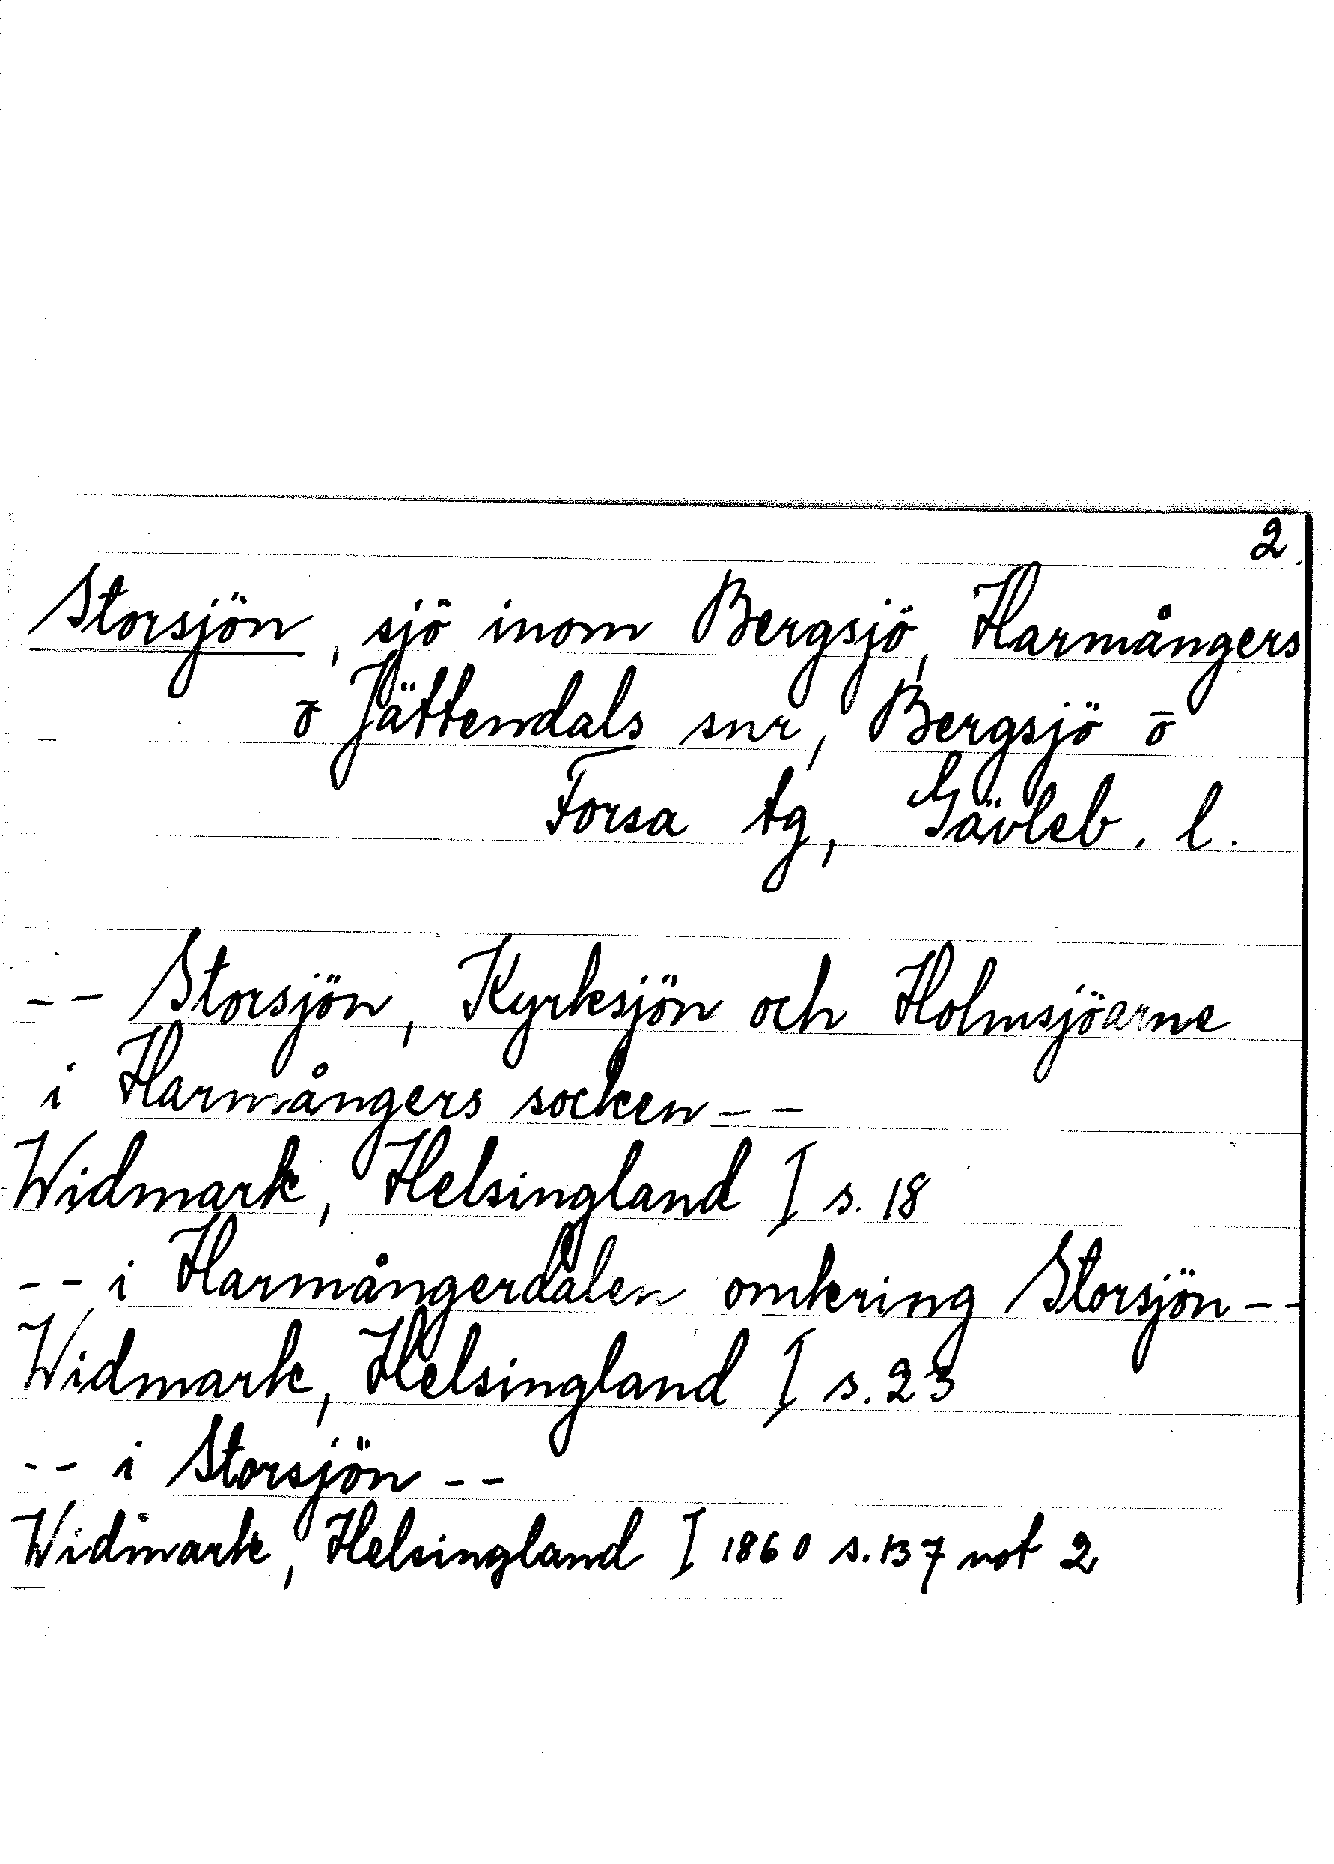 2
Storsjön, sjö inom Bergsjö, Harmångers
o Jättendals snr, Bergsjö o
Forsa tg, Gävleb. l.
-- Storsjön, Kyrksjön och Holmsjöarne
i Harmångers socken --
Widmark, Helsingland I s. 18
-- i Harmångerdalen omkring Storsjön --
Widmark, Helsingland I s. 23
-- i Storsjön --
Widmark, Helsingland I 1860 s. 137 not 2